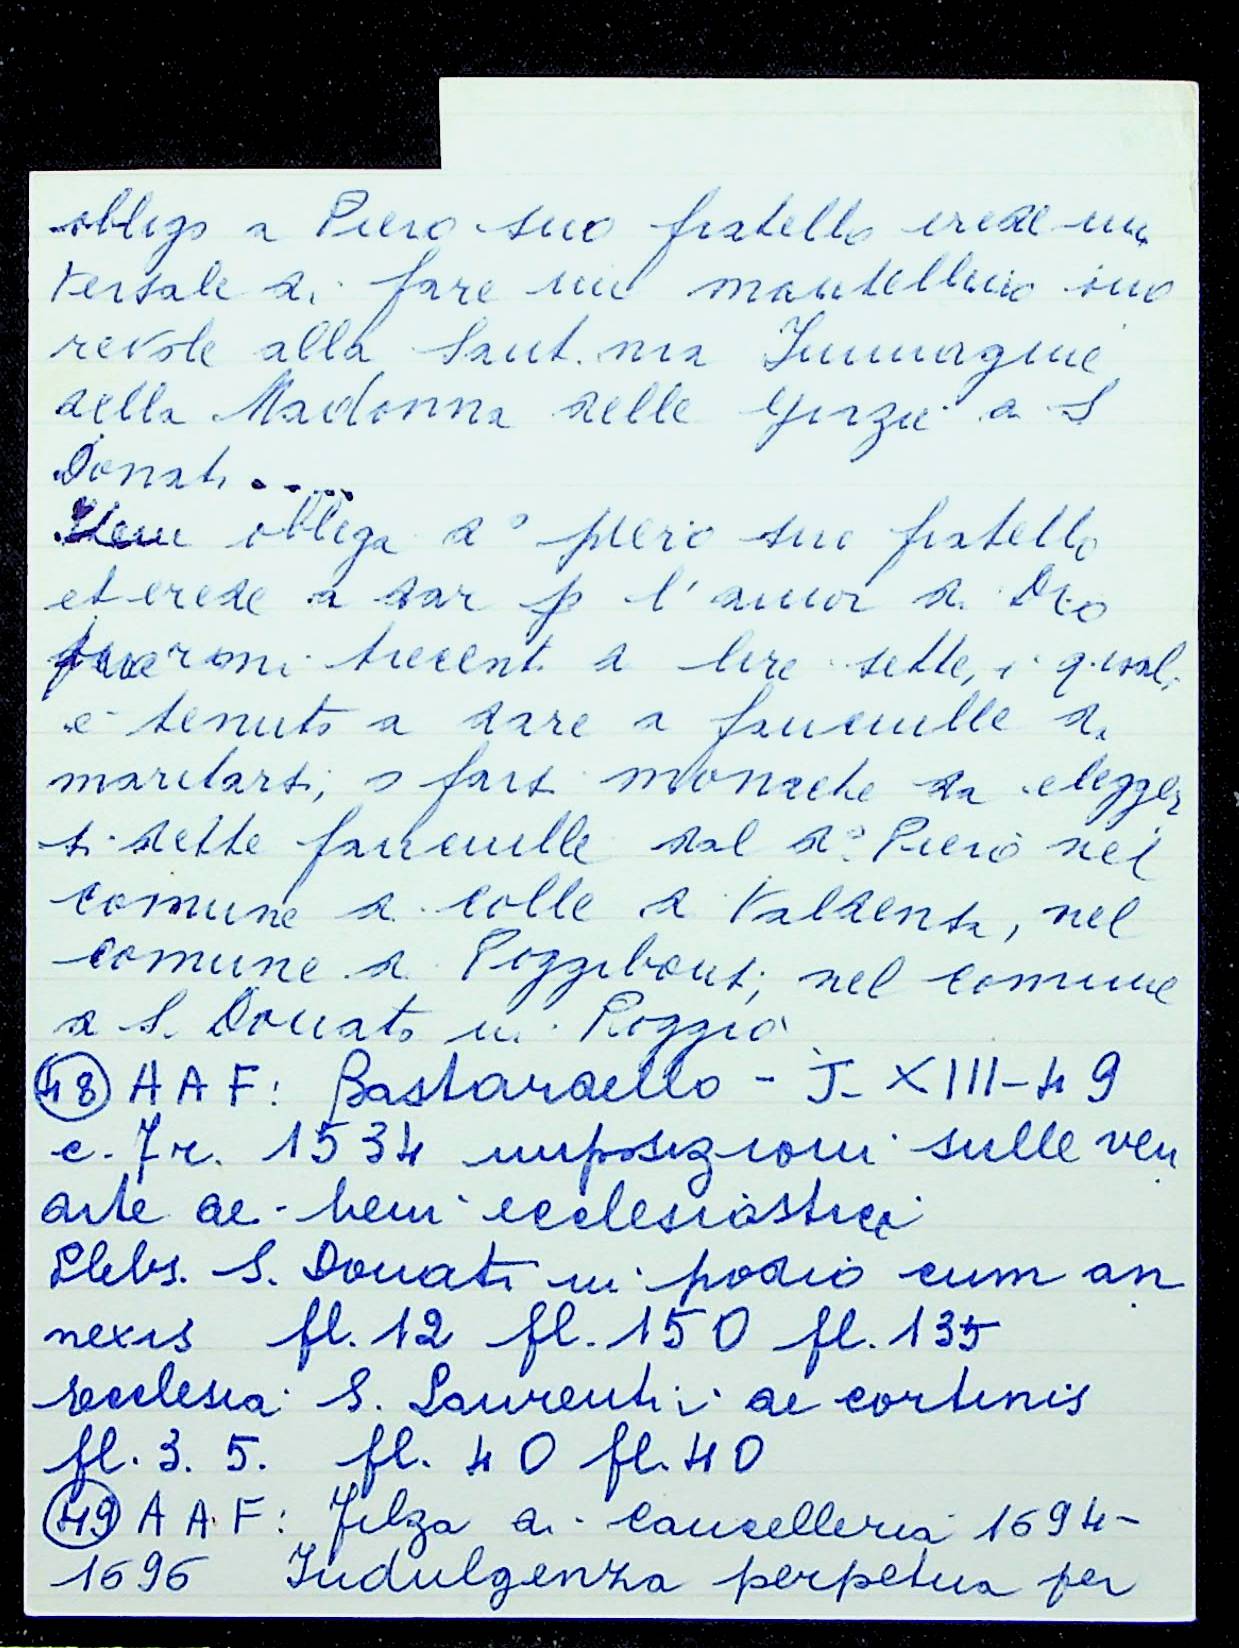 obligo a Piero suo fratello erede uni
versale di fare un mantellino ono
revole alla Sant.ma Immagine
della Madonna delle Grazie a S
Donato.....
Item obliga d° piero suo fratello
et erede a dar p l'amor di Dio
trecenti di lire sette, i quali
è tenuto a dare a fanciulle da
maritarsi, o farsi monache da elegger
si dette fanciulle dal d°. Piero nel
comune di colle di Valdensa, nel
comune di Poggibonsi, nel comune
di S. Donato in Poggio
48 A A F: Bastardello - J- XIII-49
c. 7 r. 1534 imposizioni sulle ven
dite dei beni ecclesiastici
Plebs. S. Donati in podio cum an
nexis fl. 12 fl. 150 fl. 135
ecclesia S. Laurentii de cortinis
fl. 3. 5. fl. 40 fl. 40
49 A A F: Filza di cancelleria 1694-
1696 Indulgenza perpetua per